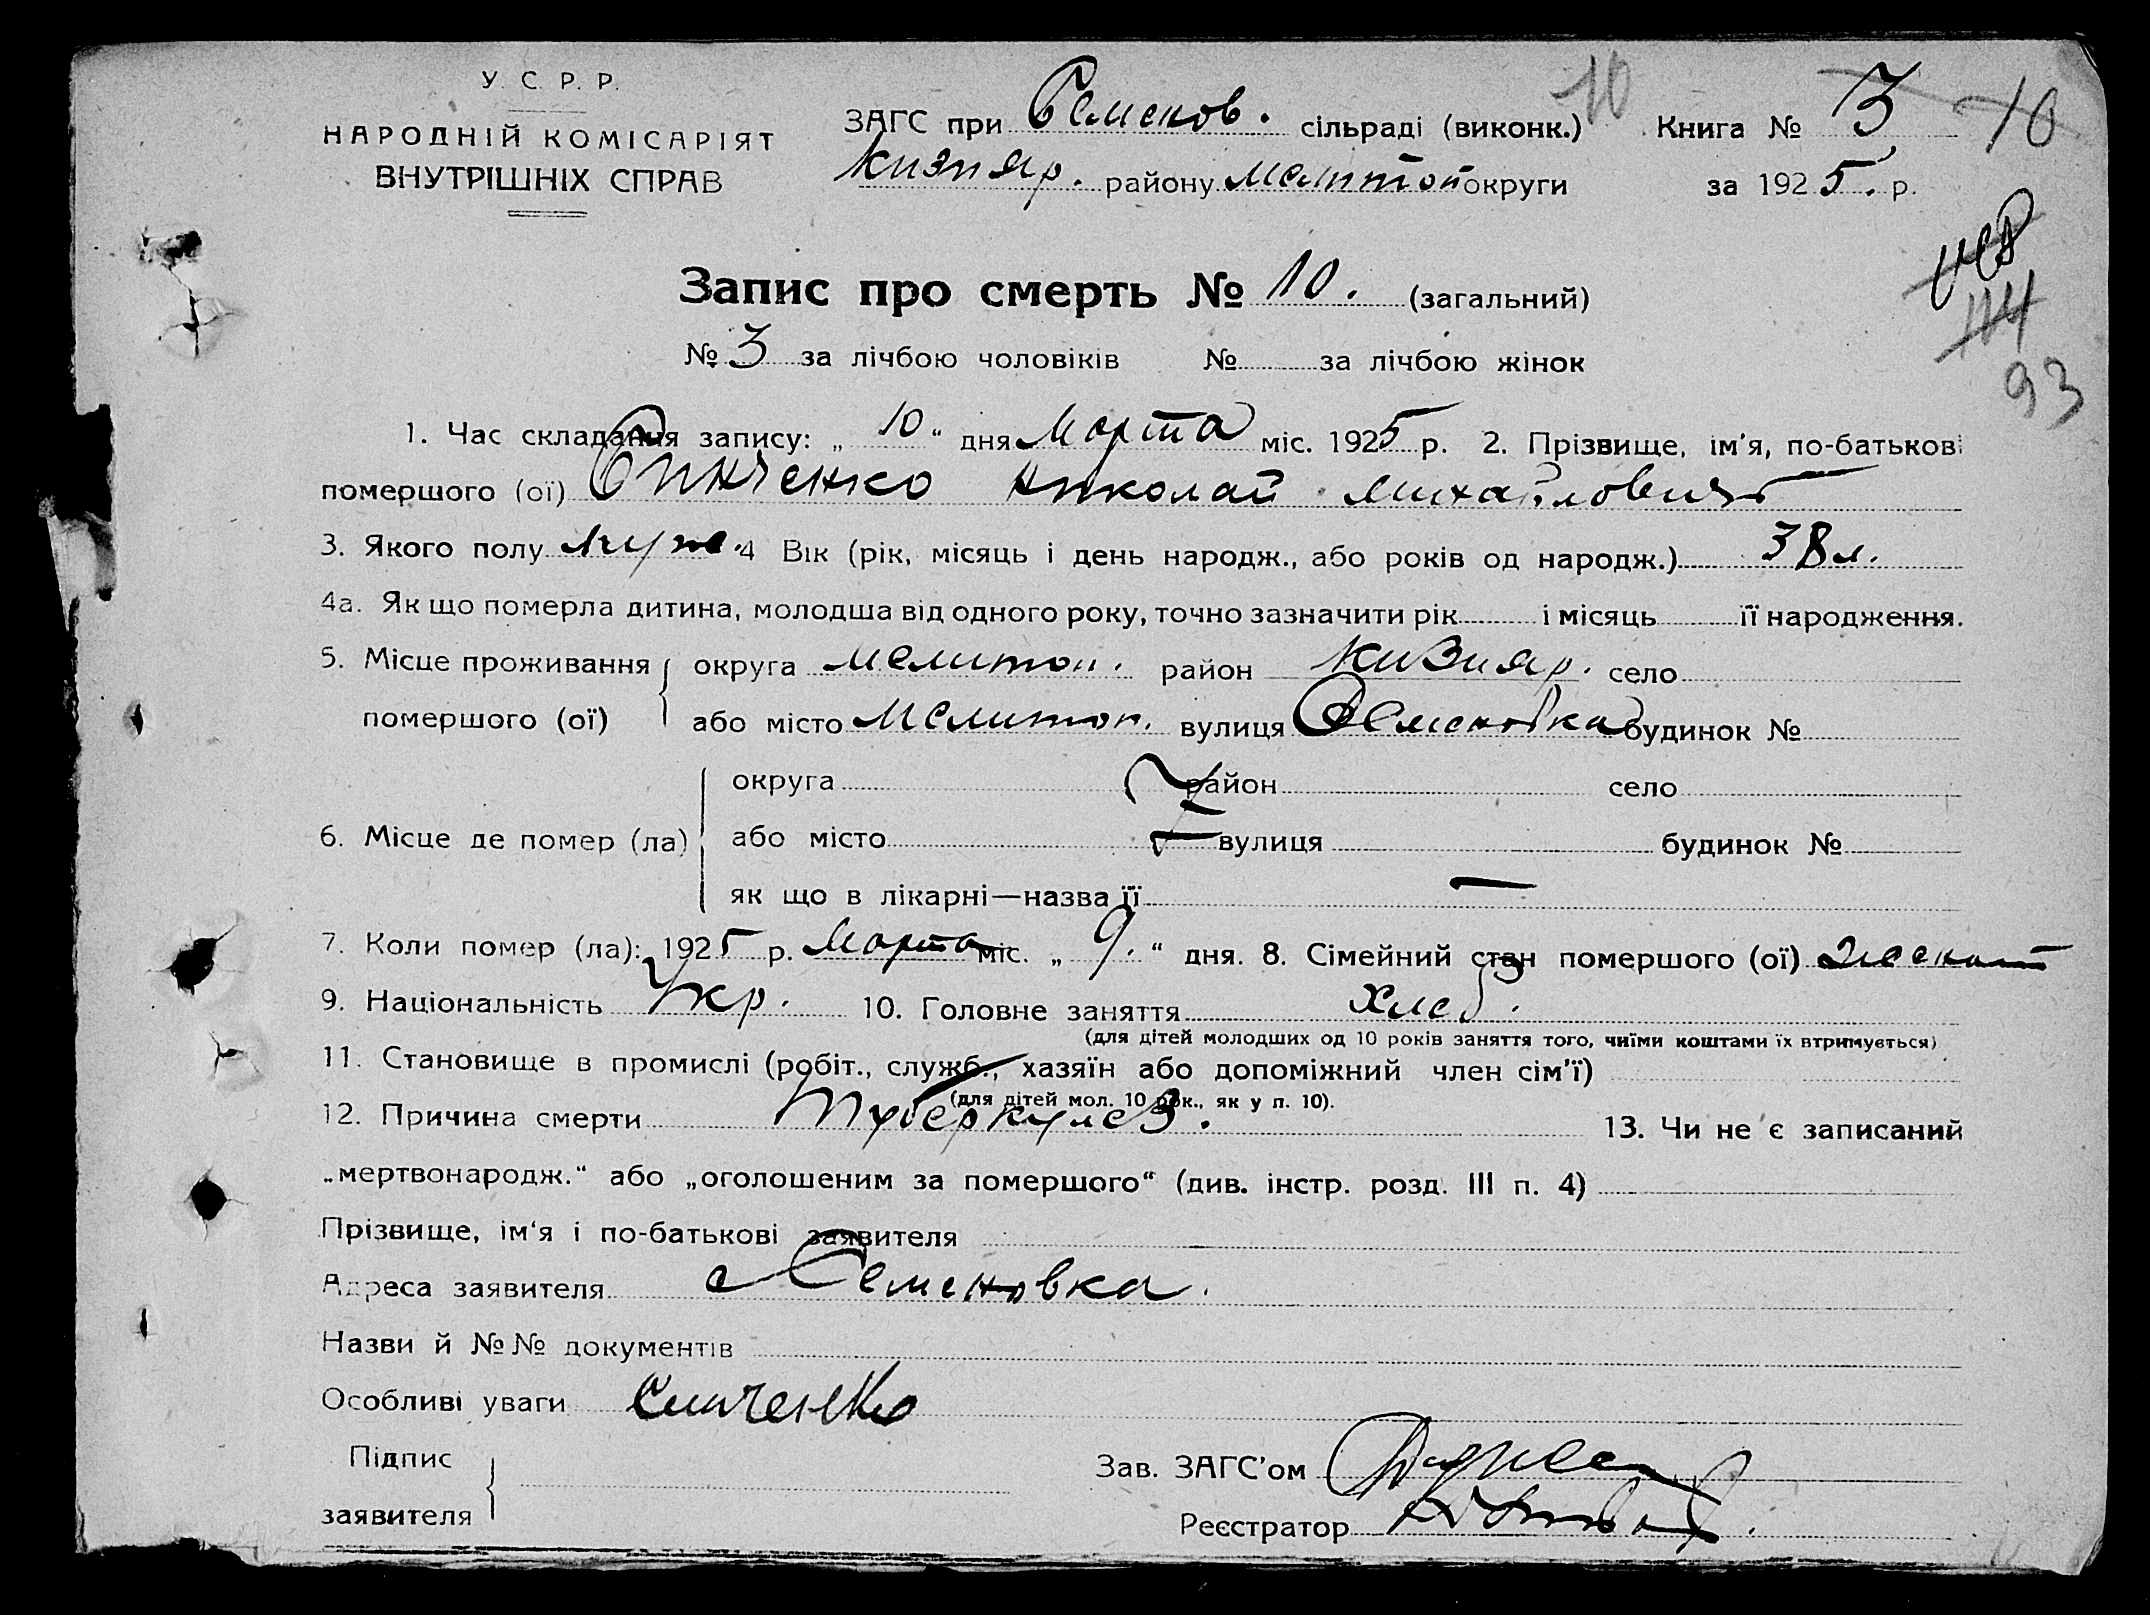 У. С. Р. Р.
НАРОДНІЙ КОМІСАРІЯТ
ВНУТРІШНІХ СПРАВ
10
ЗАГС при Семенов. сільраді (виконк.) Книга № 3 10
Кизияр. району Мелитоп округи за 1925. р.
114
93
Запис про смерть № 10. (загальний)
№ 3 за лічбою чоловіків № за лічбою жінок
1. Час складання запису: „ 10 “ дня Марта міс. 1925 р. 2. Прізвище, ім'я, по-батькові
помершого (ої) Синченко Николай Михайлович
3. Якого полу муж. 4 Вік (рік, місяць і день народж., або років од народж.) 38 л.
4а. Як що померла дитина, молодша від одного року, точно зазначити рік і місяць її народження.
5. Місце проживання округа Мелитоп. район Кизияр. село
помершого (ої) або місто Мелитоп. вулиця Семеновка будинок №
округа район село
6. Місце де помер (ла) або місто вулиця будинок №
як що в лікарні—назва її —
7. Коли помер (ла): 1925 р. Марта міс. „ 9. “ дня. 8. Сімейний стан помершого (ої) женат
9. Національність Укр. 10. Головне заняття хлеб.
(для дітей молодших од 10 років заняття того, чиїми коштами їх втримується)
11. Становище в промислі (робіт., служб., хазяїн або допоміжний член сім'ї)
(для дітей мол. 10 рок., як у п. 10).
12. Причина смерти Туберкулез. 13. Чи не є записаний
„мертвонародж.“ або „оголошеним за помершого“ (див. інстр. розд. III п. 4)
Прізвище, ім'я і по-батькові заявителя
Адреса заявителя с Семеновка.
Назви й №№ документів
Особливі уваги Синченко
Підпис
заявителя
Зав. ЗАГС'ом
Реєстратор